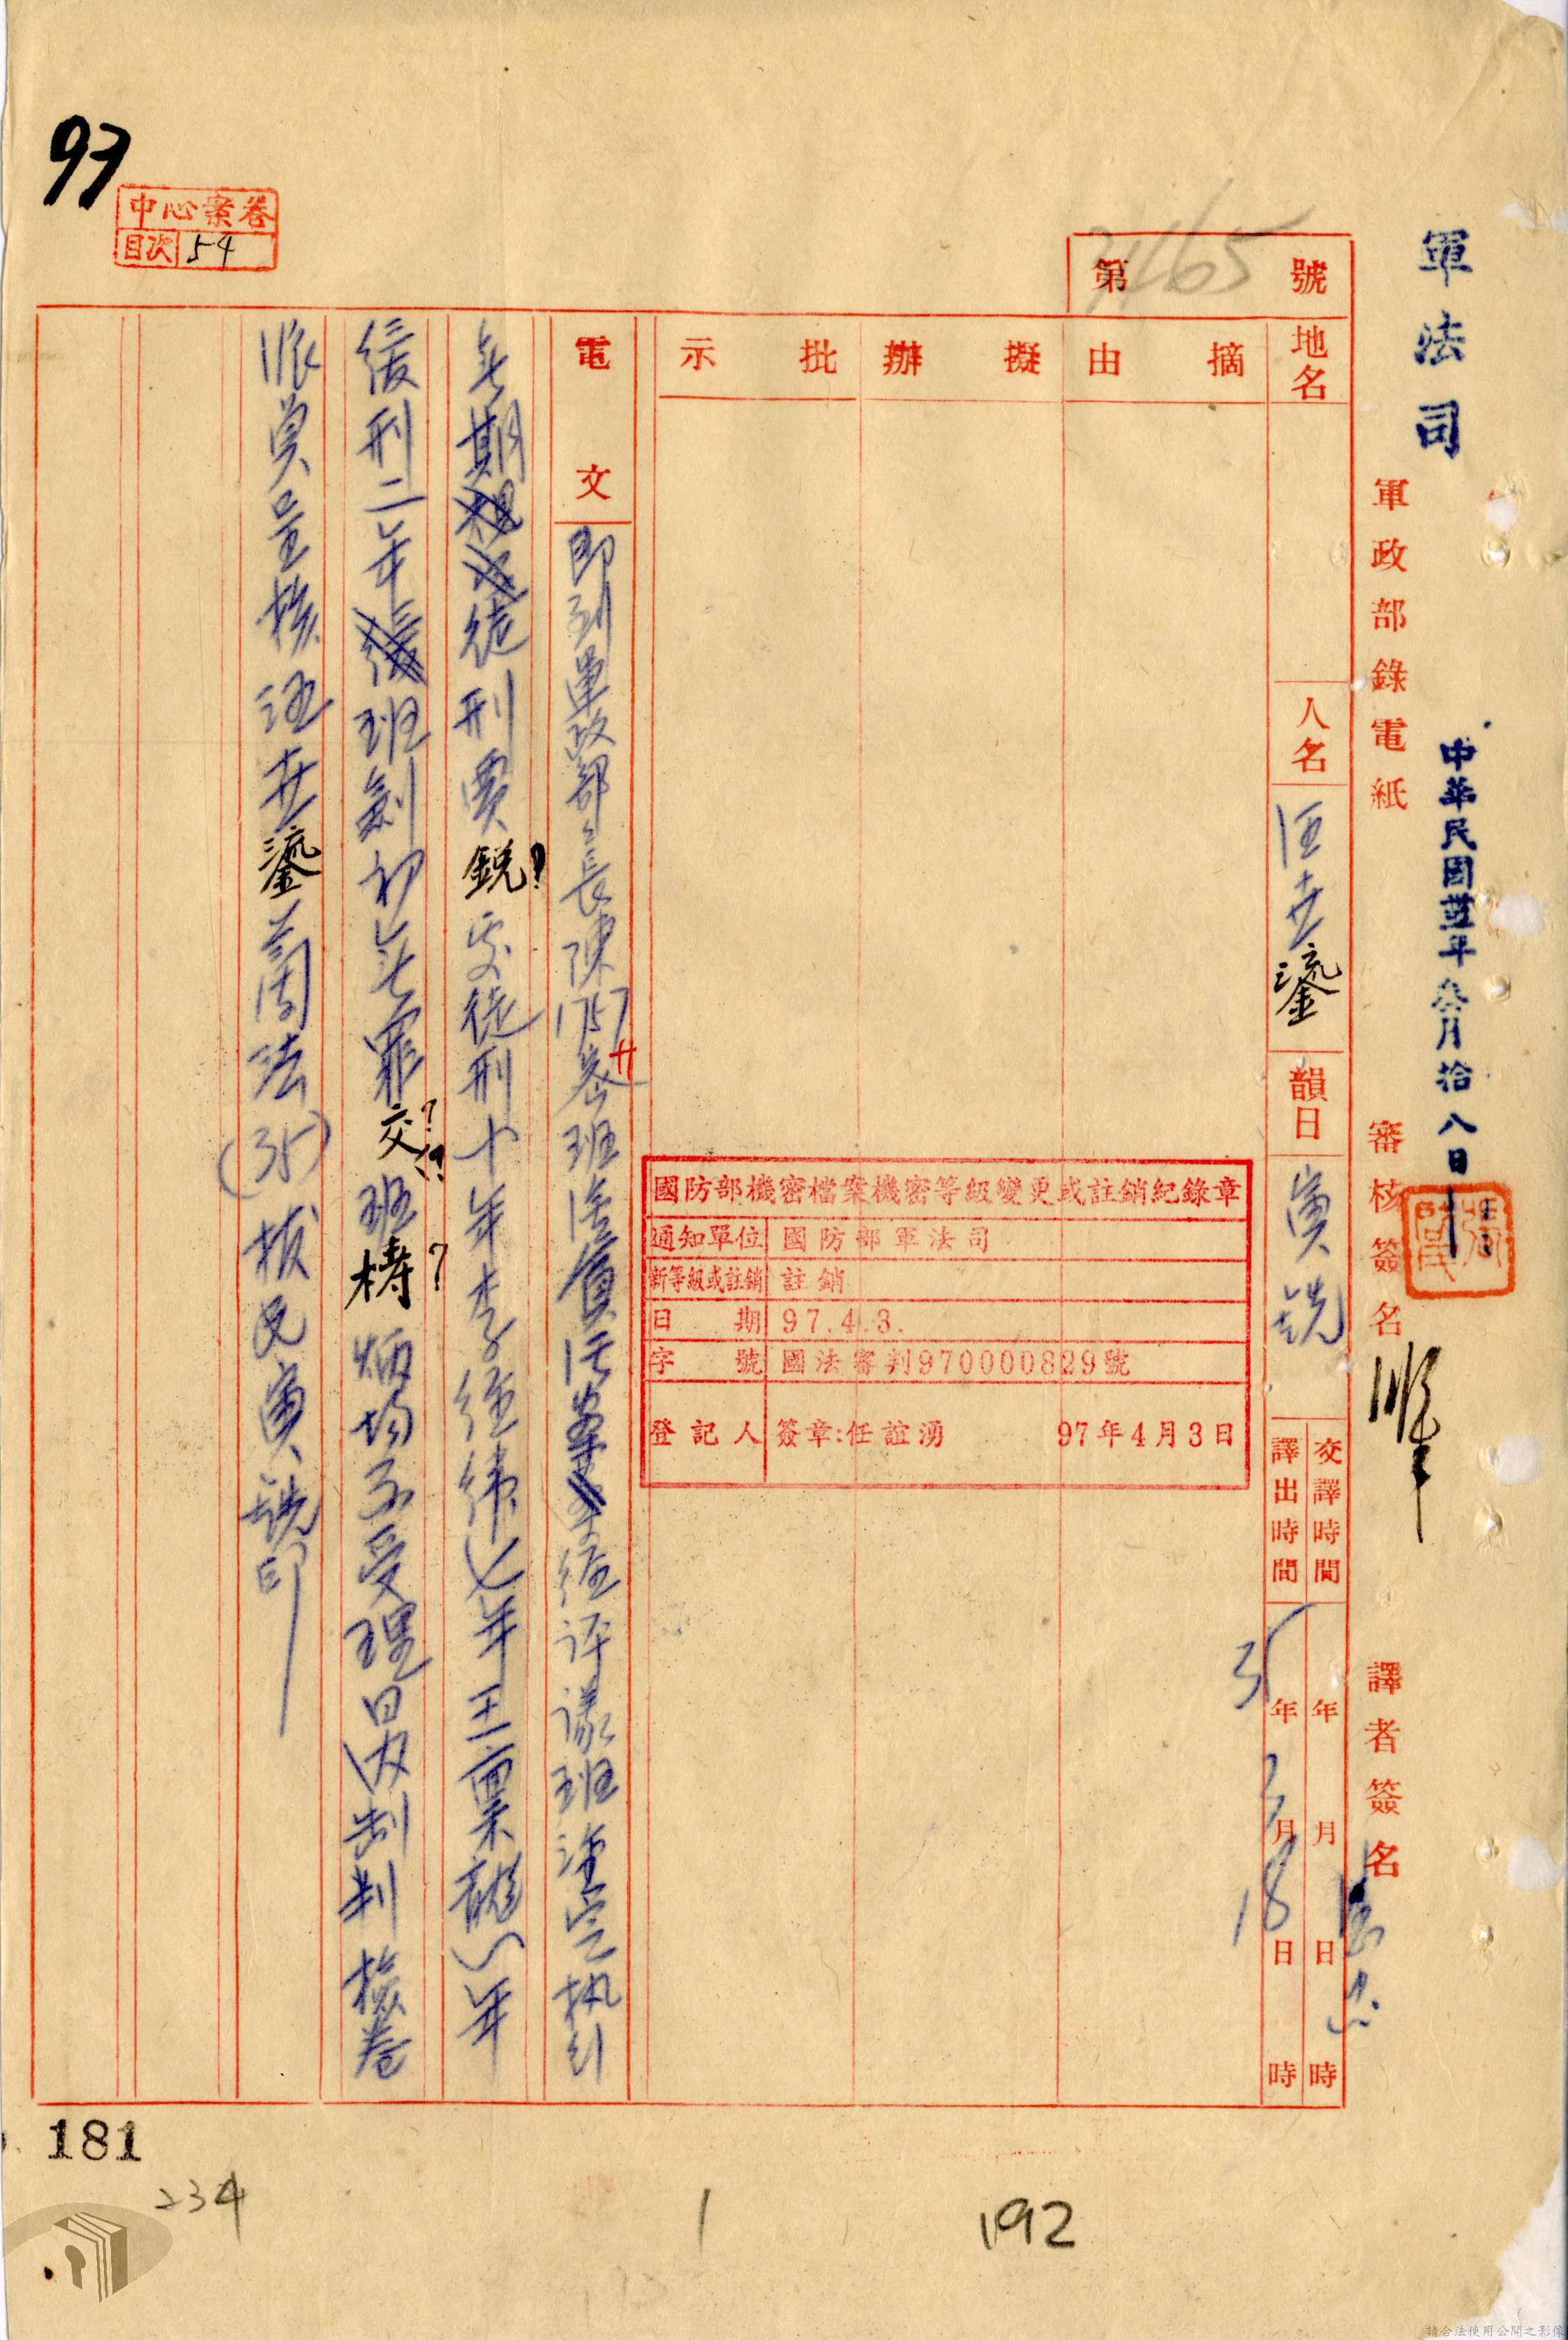 軍法司
中華民國卅五年叁月拾八日
軍政部錄電紙
審核簽名
譯者簽名
第3465號
地名
人名 汪世鎏
韻日 寅銑
交譯時間 年 月 日 時
譯出時間 35年3月18日 時
摘由
擬辦
批示
電文
即到軍政部長陳1757密班
經評議班
執行
無期徒刑賈銳?處徒刑十年李經緯七年王稟龍八年
緩刑二年班劍初無罪交??班檮?炳均不受理日內制判檢卷
派員呈核汪世鎏蕭法(35)核文寅銑印
國防部機密檔案機密等級變更或註銷紀錄章
通知單位 國防部軍法司
新等級或註銷 註銷
日期 97.4.3.
字號 國法審判970000829號
登記人 簽章:任誼湧 97年4月3日
93
中心案卷
目次 54
181
234
1
192
請合法使用公開之影像